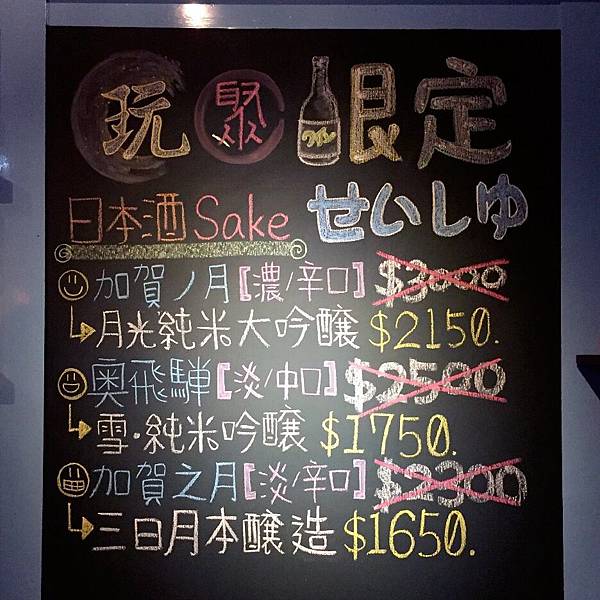 玩聚限定
日本酒Sake せいしゆ
加賀ノ月[濃/辛口] $3000
月光純米大吟醸 $2150.
奥飛騨[淡/中口] $2500
雪・純米吟醸 $1750.
加賀之月[淡/辛口] $2300
三日月本醸造 $1650.